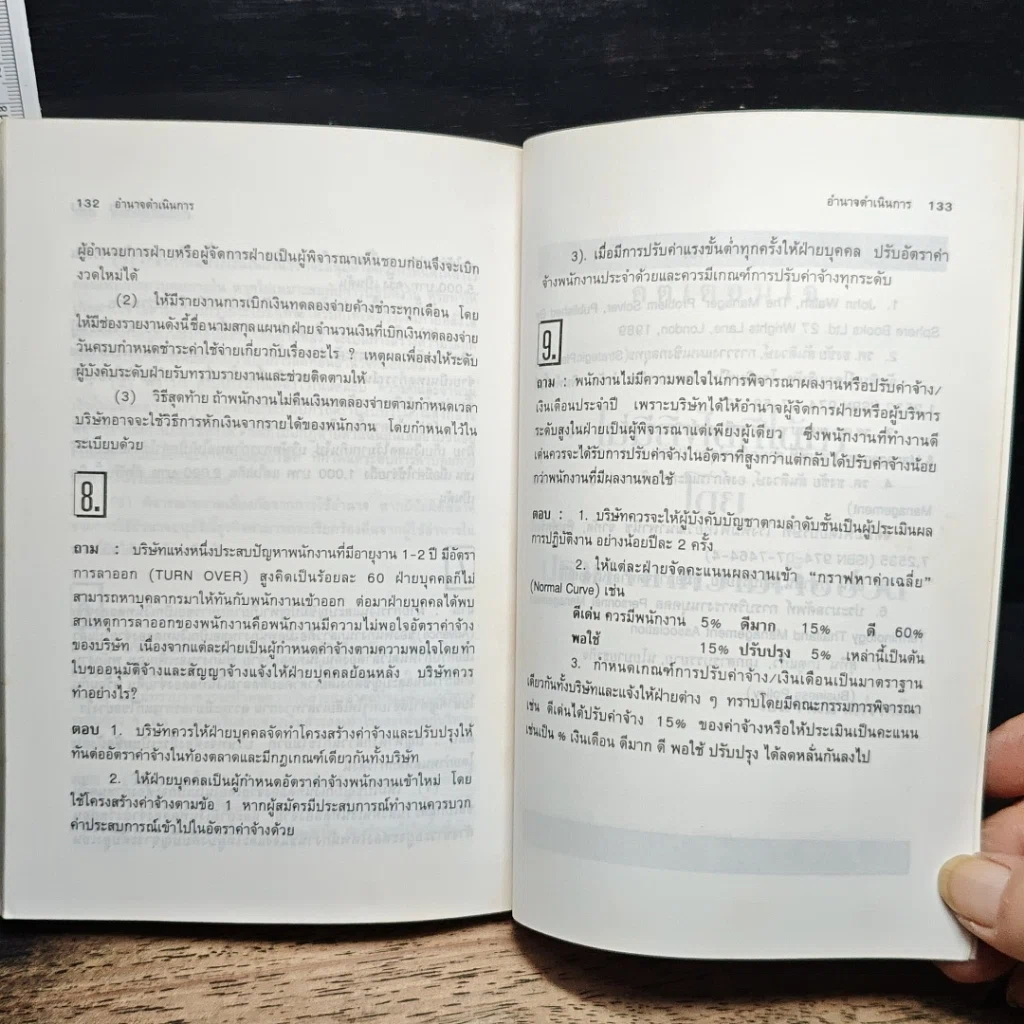 132 อำนาจดำเนินการ
ผู้อำนวยการฝ่ายหรือผู้จัดการฝ่ายเป็นผู้พิจารณาเห็นชอบก่อนจึงจะเบิก
งวดใหม่ได้
(2) ให้มีรายงานการเบิกเงินทดลองจ่ายค้างชำระทุกเดือน โดย
ให้มีช่องรายงานดังนี้ชื่อนามสกุลแผนกฝ่ายจำนวนเงินที่เบิกเงินทดลองจ่าย
วันครบกำหนดชำระค่าใช้จ่ายเกี่ยวกับเรื่องอะไร ? เหตุผลเพื่อส่งให้ระดับ
ผู้บังคับระดับฝ่ายรับทราบรายงานและช่วยติดตามให้
(3) วิธีสุดท้าย ถ้าพนักงานไม่คืนเงินทดลองจ่ายตามกำหนดเวลา
บริษัทอาจจะใช้วิธีการหักเงินจากรายได้ของพนักงาน โดยกำหนดไว้ใน
ระเบียบด้วย
8.
ถาม : บริษัทแห่งหนึ่งประสบปัญหาพนักงานที่มีอายุงาน 1-2 ปี มีอัตรา
การลาออก (TURN OVER) สูงคิดเป็นร้อยละ 60 ฝ่ายบุคคลก็ไม่
สามารถหาบุคลากรมาให้ทันกับพนักงานเข้าออก ต่อมาฝ่ายบุคคลได้พบ
สาเหตุการลาออกของพนักงานคือพนักงานมีความไม่พอใจอัตราค่าจ้าง
ของบริษัท เนื่องจากแต่ละฝ่ายเป็นผู้กำหนดค่าจ้างตามความพอใจโดยทำ
ใบขออนุมัติจ้างและสัญญาจ้างแจ้งให้ฝ่ายบุคคลย้อนหลัง บริษัทควร
ทำอย่างไร?
ตอบ 1. บริษัทควรให้ฝ่ายบุคคลจัดทำโครงสร้างค่าจ้างและปรับปรุงให้
ทันต่ออัตราค่าจ้างในท้องตลาดและมีกฎเกณฑ์เดียวกันทั้งบริษัท
2. ให้ฝ่ายบุคคลเป็นผู้กำหนดอัตราค่าจ้างพนักงานเข้าใหม่ โดย
ใช้โครงสร้างค่าจ้างตามข้อ 1 หากผู้สมัครมีประสบการณ์ทำงานควรบวก
ค่าประสบการณ์เข้าไปในอัตราค่าจ้างด้วย
อำนาจดำเนินการ 133
3). เมื่อมีการปรับค่าแรงขั้นต่ำทุกครั้งให้ฝ่ายบุคคล ปรับอัตราค่า
จ้างพนักงานประจำด้วยและควรมีเกณฑ์การปรับค่าจ้างทุกระดับ
9.
ถาม : พนักงานไม่มีความพอใจในการพิจารณาผลงานหรือปรับค่าจ้าง/
เงินเดือนประจำปี เพราะบริษัทได้ให้อำนาจผู้จัดการฝ่ายหรือผู้บริหาร
ระดับสูงในฝ่ายเป็นผู้พิจารณาแต่เพียงผู้เดียว ซึ่งพนักงานที่ทำงานดี
เด่นควรจะได้รับการปรับค่าจ้างในอัตราที่สูงกว่าแต่กลับได้ปรับค่าจ้างน้อย
กว่าพนักงานที่มีผลงานพอใช้
ตอบ : 1. บริษัทควรจะให้ผู้บังคับบัญชาตามลำดับชั้นเป็นผู้ประเมินผล
การปฏิบัติงาน อย่างน้อยปีละ 2 ครั้ง
2. ให้แต่ละฝ่ายจัดคะแนนผลงานเข้า "กราฟหาค่าเฉลี่ย"
(Normal Curve) เช่น
ดีเด่น ควรมีพนักงาน 5% ดีมาก 15% ดี 60%
พอใช้ 15% ปรับปรุง 5% เหล่านี้เป็นต้น
3. กำหนดเกณฑ์การปรับค่าจ้าง/เงินเดือนเป็นมาตราฐาน
เดียวกันทั้งบริษัทและแจ้งให้ฝ่ายต่าง ๆ ทราบโดยมีคณะกรรมการพิจารณา
เช่น ดีเด่นได้ปรับค่าจ้าง 15% ของค่าจ้างหรือให้ประเมินเป็นคะแนน
เช่นเป็น % เงินเดือน ดีมาก ดี พอใช้ ปรับปรุง ได้ลดหลั่นกันลงไป